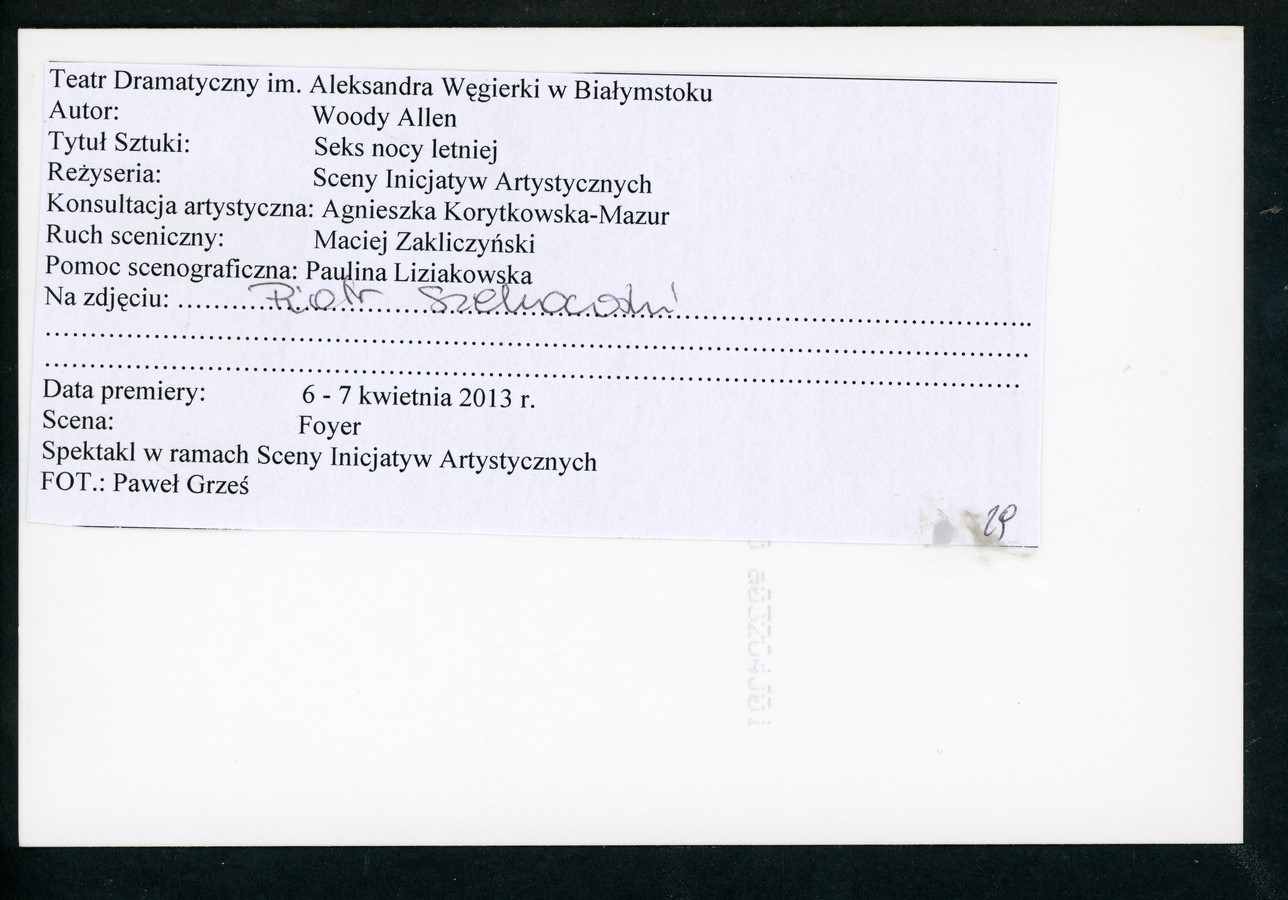 Teatr Dramatyczny im. Aleksandra Węgierki w Białymstoku
Autor: Woody Allen
Tytuł Sztuki: Seks nocy letniej
Reżyseria: Sceny Inicjatyw Artystycznych
Konsultacja artystyczna: Agnieszka Korytkowska-Mazur
Ruch sceniczny: Maciej Zakliczyński
Pomoc scenograficzna: Paulina Liziakowska
Na zdjęciu: Piotr
Data premiery: 6 - 7 kwietnia 2013 r.
Scena: Foyer
Spektakl w ramach Sceny Inicjatyw Artystycznych
FOT.: Paweł Grześ
29